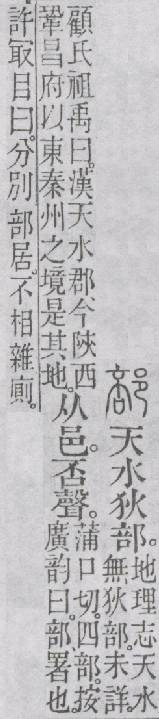 部天水狄部。
地理志天水
無狄部。未詳
顧氏祖禹曰。漢天水郡今陝西
鞏昌府以東秦州之境是其地。
从邑。咅聲。
蒲口切。四部。按
廣韵曰。部、署也。
許冣目曰。分別部居。不相雜廁。